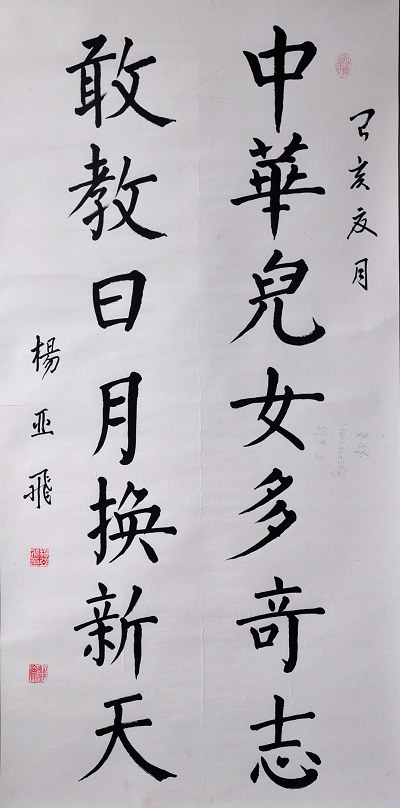 己亥夏月
中華兒女多奇志
敢教日月换新天
楊亚飛